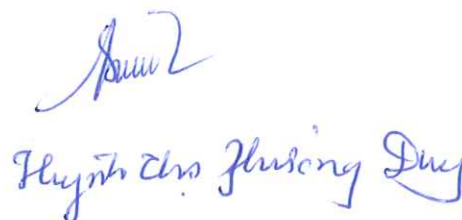 Huỳnh Thị Phương Duy